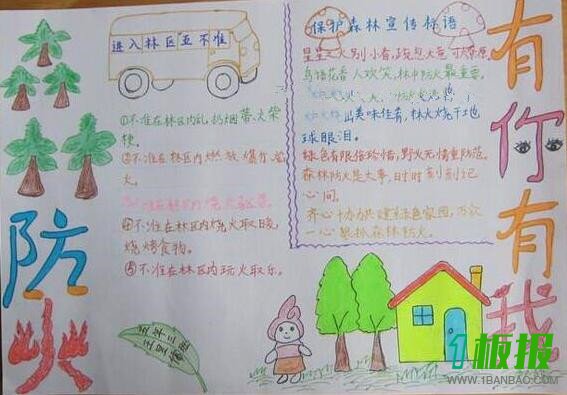 防火
有你有我
进入林区五不准
①不准在林区内乱扔烟蒂、火柴
梗。
②不准在林区内燃放爆竹、焰
火。
④不准在林区内烧火取暖、
烧烤食物。
⑤不准在林区内玩火取乐。
保护森林宣传标语
星星之火别小看,疏忽大意可燎原。
鸟语花香人欢笑,林中防火最重要。
出美味佳肴,林火烧干地
球眼泪。
绿色有限倍珍惜,野火无情重防范。
森林防火是大事,时时刻刻记
心间。
齐心协力共建绿色家园,万众
一心狠抓森林防火。
五年三班
1板报
WWW.1BANBAO.COM